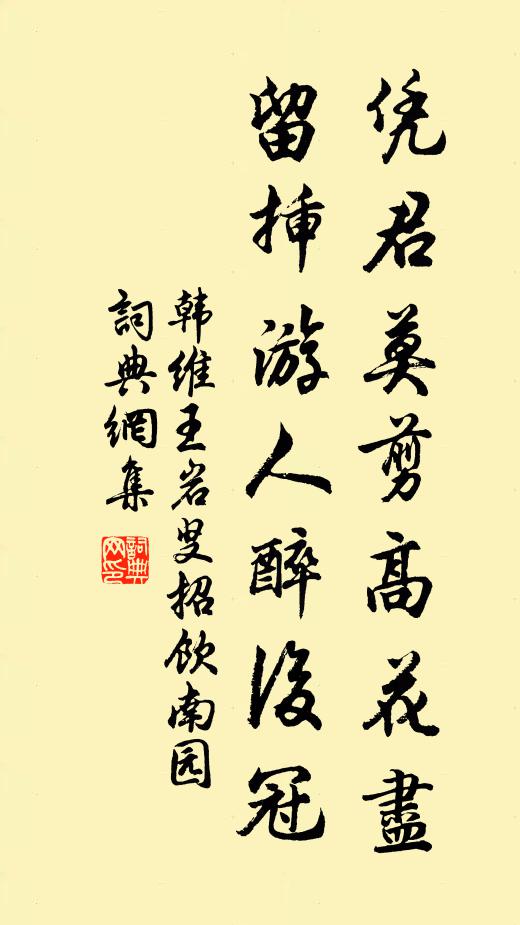 凭君莫剪高花盡
留插游人醉後冠
韩维王岩叟招饮南园
詞典網集
詞典
网印